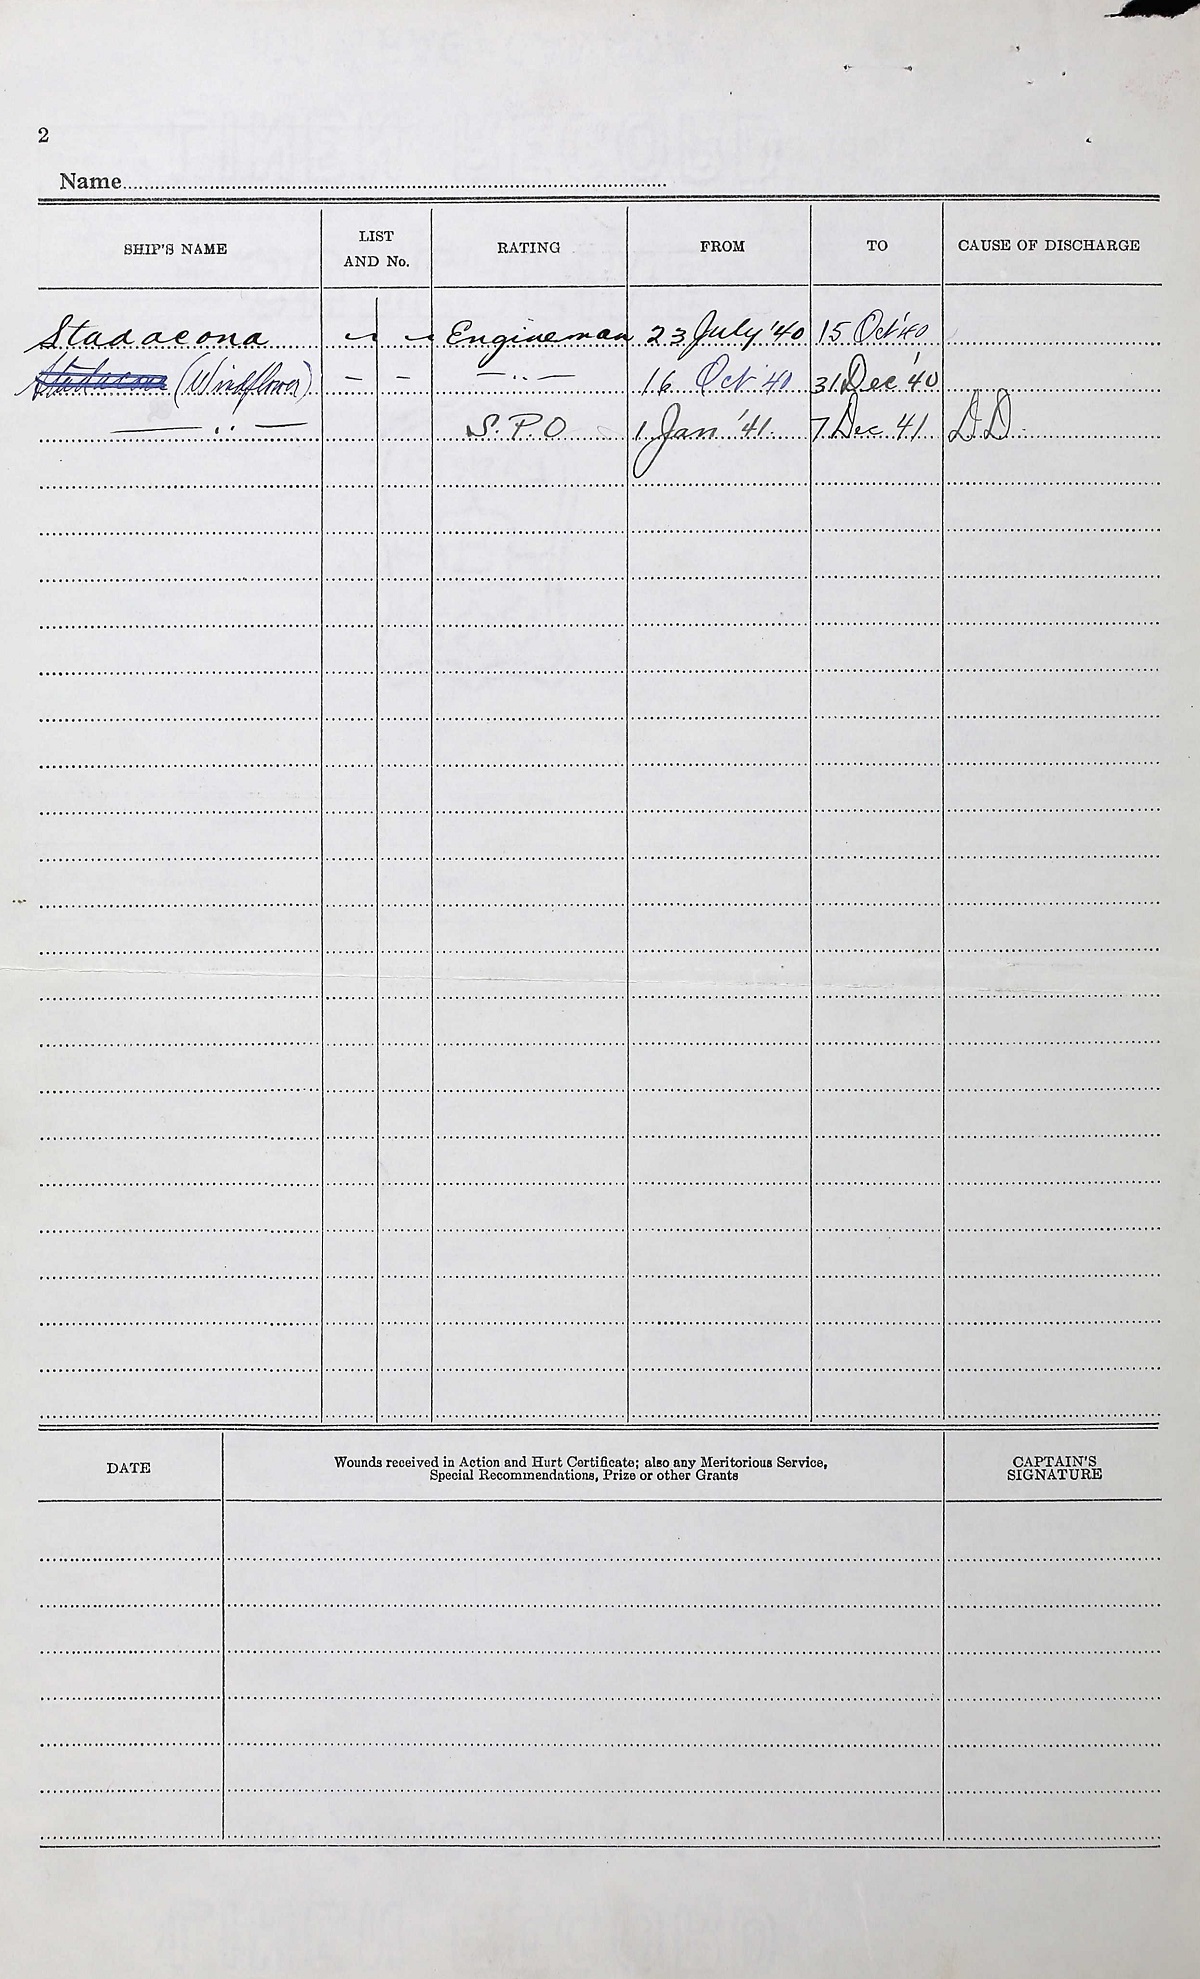 2
Name
SHIP'S NAME LIST AND No. RATING FROM TO CAUSE OF DISCHARGE
Stadacona " " Engineman 23 July '40 15 Oct '40
Stadacona (Windflower) — — — " — 16 Oct '40 31 Dec '40
— " — S.P.O 1 Jan '41 7 Dec 41 D.D.
DATE Wounds received in Action and Hurt Certificate; also any Meritorious Service, CAPTAIN'S
Special Recommendations, Prize or other Grants SIGNATURE